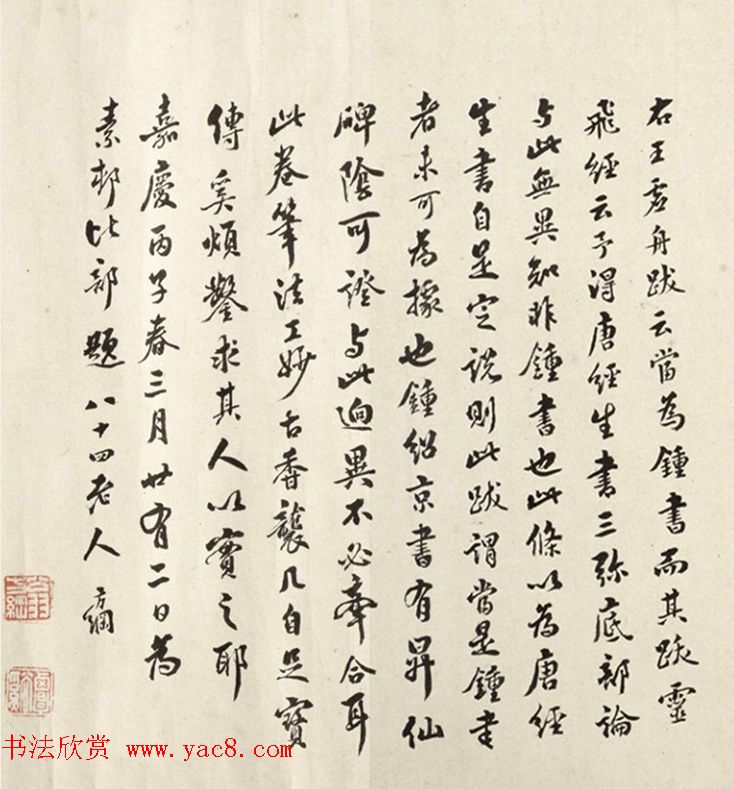 右王虛舟跋云當為鍾書而其跋靈
飛經云予得唐經生書三弥底部論
与此無異知非鍾書也此條以為唐經
生書自是定說則此跋謂當是鍾書
者未可為據也鍾紹京書有昇仙
碑陰可證与此迥異不必牽合耳
此卷筆法工妙古香襲几自足寶
傳奚煩鑿求其人以實之耶
嘉慶丙子春三月廿有二日為
素邨比部題八十四老人方綱
书法欣赏 www.yac8.com